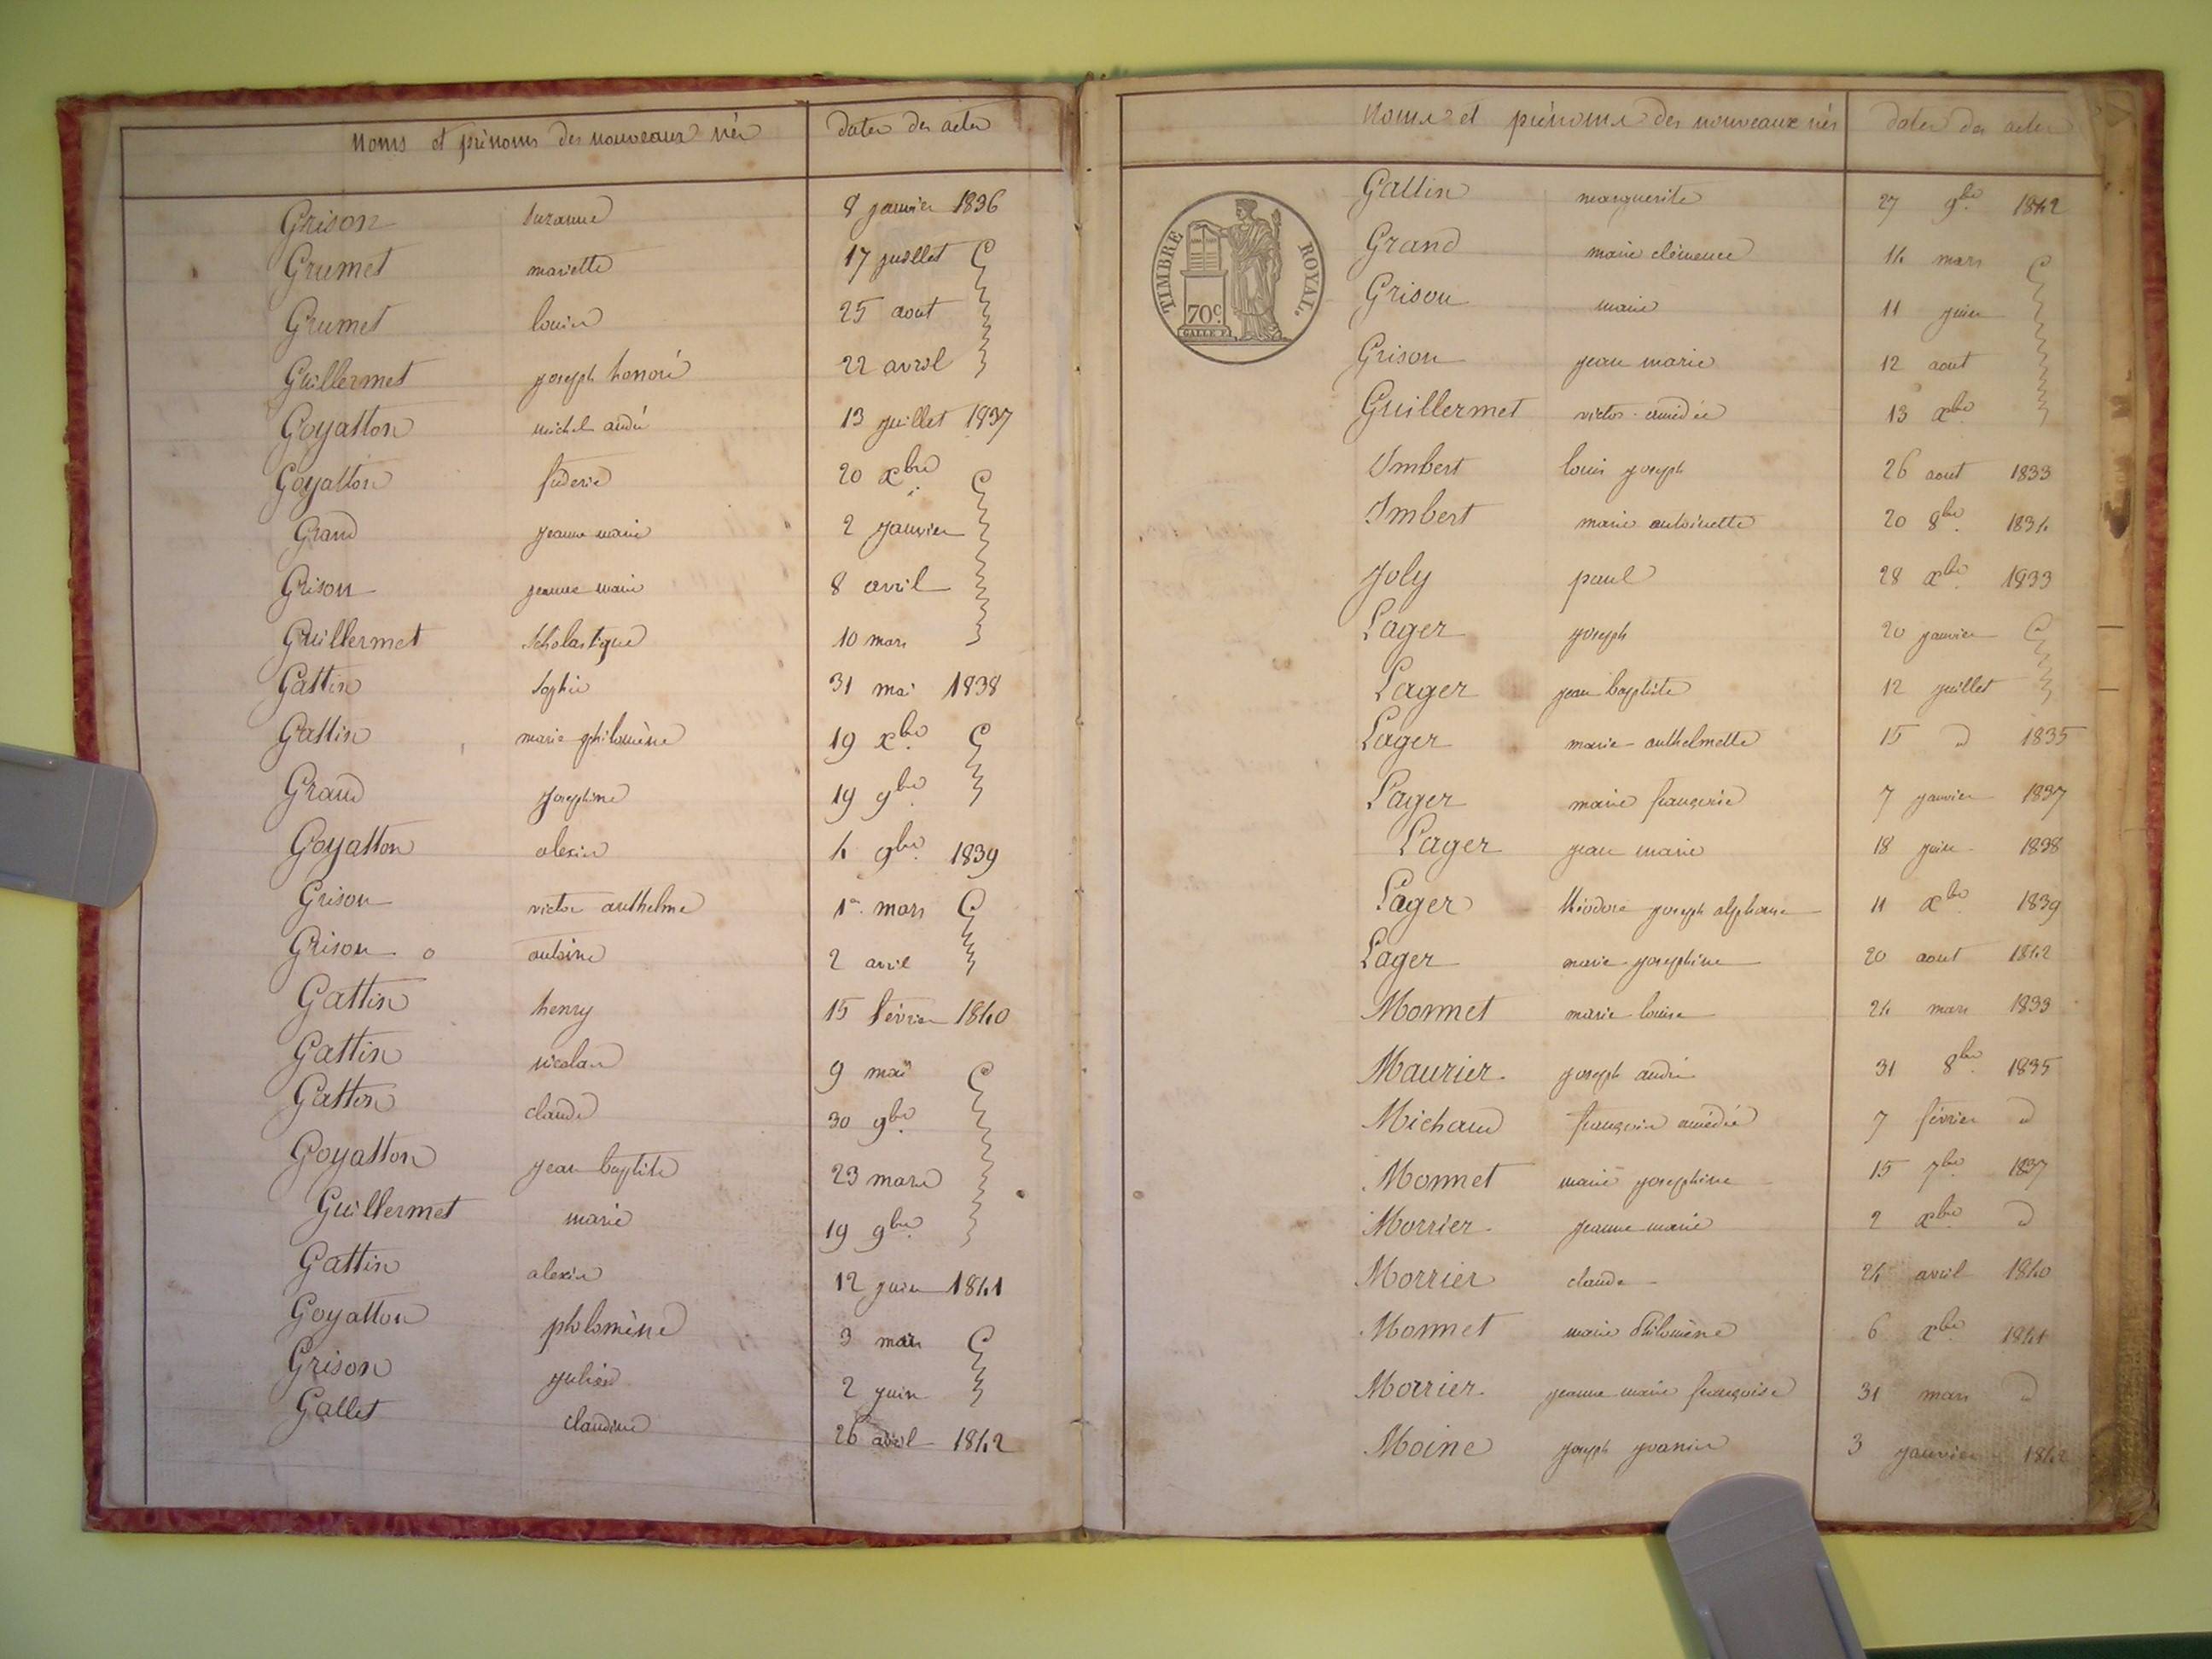 noms et prénoms des nouveaux nés dates des actes
Grison suzanne 8 janvier 1836
Grumet mariette 17 juillet
Grumet louis 25 aout
Guillermet joseph honoré 22 avril
Goyatton michel andré 13 juillet 1837
Goyatton fréderic 20 xbre
Grand jeanne marie 2 janvier
Grison jeanne marie 8 avril
Guillermet scholastique 10 mars
Gattin sophie 31 mai 1838
Gattin marie philomène 19 xbre
Grand josephine 19 9bre
Goyatton alexis 4 9bre 1839
Grison victor anthelme 1er mars
Grison o antoine 2 avril
Gattin henry 15 février 1840
Gattin nicolas 9 mai
Gatton claude 30 9bre
Goyatton jean baptiste 23 mars
Guillermet marie 19 9bre
Gattin alexis 12 juin 1841
Goyatton philomène 3 mars
Grison julien 2 juin
Gallet claudine 26 avril 1842
noms et prénoms des nouveaux nés dates des actes
TIMBRE ROYAL.
70c
GALLE F.
Gattin marguerite 27 9bre 1842
Grand marie clémence 14 mars
Grison marie 11 juin
Grison jean marie 12 aout
Guillermet victor amédée 13 xbre
Imbert louis joseph 26 aout 1833
Imbert marie antoinette 20 8bre 1834
Joly paul 28 xbre 1833
Lager joseph 20 janvier
Lager jean baptiste 12 juillet
Lager marie anthelmette 15 d 1835
Lager marie françoise 7 janvier 1837
Lager jean marie 18 juin 1838
Lager théodore joseph alphonse 11 xbre 1839
Lager marie josephine 20 aout 1842
Monnet marie louise 24 mars 1833
Maurier joseph andré 31 8bre 1835
Michaud françois amédée 7 février d
Monnet marie josephine 15 7bre 1837
Morrier jeanne marie 2 xbre d
Morrier claude 24 avril 1840
Monnet marie Philomène 6 xbre 1841
Morrier jeanne marie françoise 31 mars d
Moine joseph 3 janvier 1842